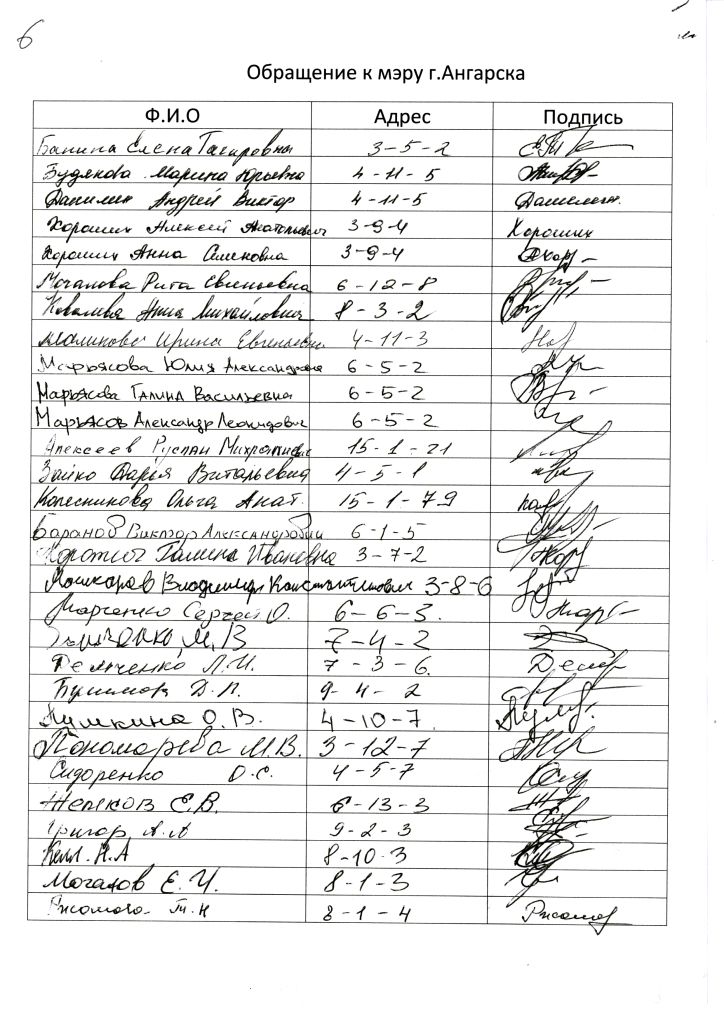 6
Обращение к мэру г.Ангарска
Ф.И.О Адрес Подпись
Елена Тагировна 3-5-2
Будякова Марина Юрьевна 4-11-5
Данилин Андрей Виктор 4-11-5
Хороших Алексей Анатольевич 3-9-4 Хороших
Хороших Анна Семеновна 3-9-4
Мочалова Рита Евгеньевна 6-12-8
Ковалева Анна Михайлович 8-3-2
Маликова Ирина Евгеньевна 4-11-3
Марьясова Юлия Александровна 6-5-2
Марьясова Галина Васильевна 6-5-2
Марьясов Александр Леонидович 6-5-2
Алексеев Руслан 15-1-21
Зайко Дарья Витальевна 4-5-1
Колесникова Ольга Анат. 15-1-79
Баранов Виктор Александрович 6-1-5
Галина Ивановна 3-7-2
Мошкарев Владимир Константинович 3-8-6
Марченко Сергей О. 6-6-3.
М, В 7-4-2
Л.И. 7-3-6.
Д.П. 9-4-2
Пушкина О.В. 4-10-7.
Пономарева М.В. 3-12-7
Сидоренко О.С. 4-5-7
Е.В. 6-13-3
Григор А.А 9-2-3
Келл. Н.А 8-10-3
Мочалов Е.Ч. 8-1-3
Т.Н 8-1-4